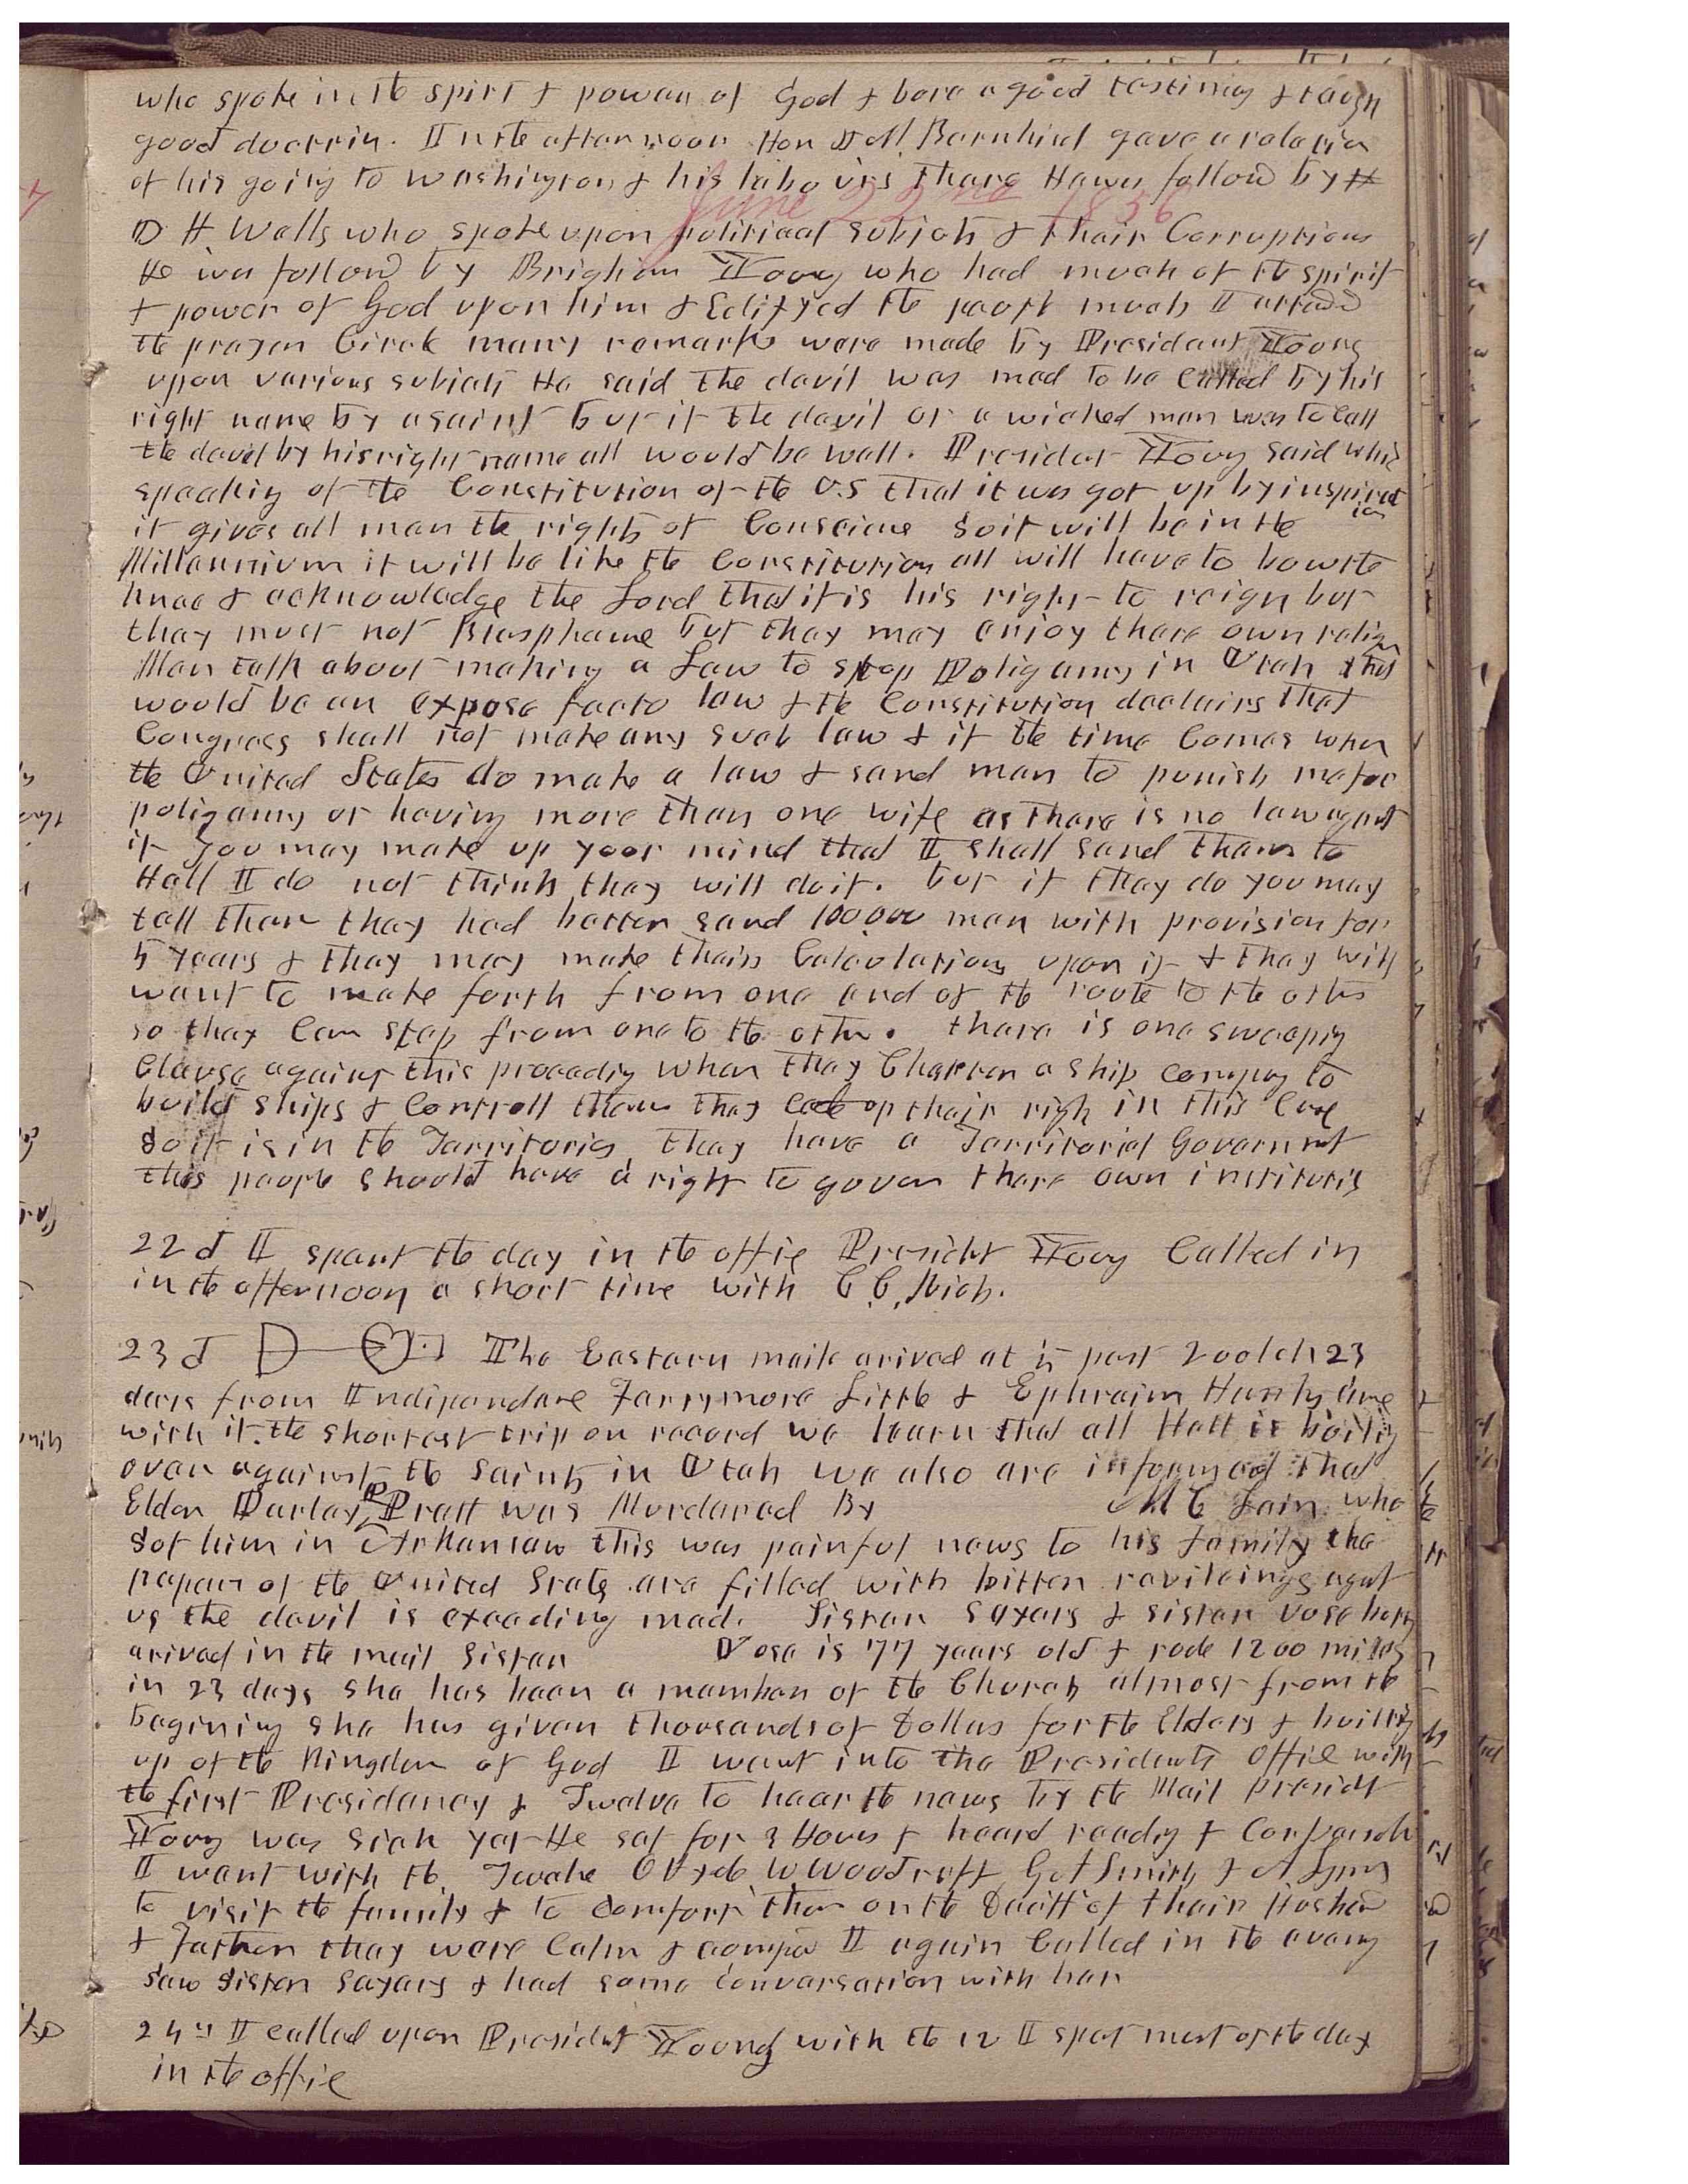 who spoke in the spirit & power of God & bore a good testimony & taught
good doctrin. In the afternoon Hon J M. Bernhisel gave a relation
of his going to Washington & his labours there He was follow by
June 22nd 1856
D H. Wells who spoke upon political subjects & their Corruptions
He was followd by Brigham Young who had much of the spirit
& power of God upon him & Edifyed the people much I attended
the prayer Circle many remarks were made by President Young
upon various subjects He said the devil was mad to be Called by his
right name by a saint but if the devil or a wicked man was to Call
the devel by his right name all would be well. President Young said while
speaking of the Constitution of the U.S that it was got up by inspirat
ion
it gives all men the rights of Conscience so it will be in the
Millennium it will be like the Constitution all will have to bow the
knee & acknowledge the Lord that it is his right to reign but
they must not Blaspheme but they may enjoy there own religion
Men talk about making a Law to stop Poligamy in Utah this
would be an expose facto law & the Constitution declairs that
Congress shall not make any such law & if the time Comes when
the United States do make a law & send men to punish me for
poligamy or having more than one wife as there is no law against
it you may make up your mind that I shall send them to
Hell I do not think they will do it. but if they do you may
tell them they had better send 100,000 men with provision for
5 years & they may make their Calculations upon it & they will
want to make forth from one end of the route to the other
so they Can step from one to the other. there is one sweeping
Clause against this proceeding when they Charter a ship company to
build ships & Controll them they cede up their right in this Case
So it is in the Territories they have a Territorial Government
this people should have a right to govern there own institutions
22d I spent the day in the office President Young Called in
in the afternoon a short time with C. C. Rich.
23d The Eastern mail arived at ½ past 2 oclock 23
days from Independance Ferrymore Little & Ephraim Hanks came
with it. the shortest trip on record we learn that all Hell is boiling
over against the Saints in Utah we also are informed that
Elder Parley P Pratt was Murdered By M C Lain who
Sot him in Arkansaw this was painful news to his family the
papers of the United States are filled with bitter revileings against
us the devil is exceeding mad. Sister Sayers & sister Vose both
arived in the mail Sister Vose is 77 years old & rode 1200 miles
in 23 days she has been a member of the Church almost from the
begining she has given thousands of Dollars for the Elders & building
up of the Kingdom of God I went into the Presidents Office with
the first Presidency & Twelve to hear the news by the Mail president
Young was sick yet He sat for 3 Hours & heard reading & Conversed
I went with the Twelve O Hyde W Woodruff G A Smith & A Lyman
to visit the family & to Comfort them on the Death of their Husband
& Father they were Calm & compos I again Called in the evening
saw sister Sayers & had some Conversation with her
24th I called upon President Young with the 12 I spent most of the day
in the office